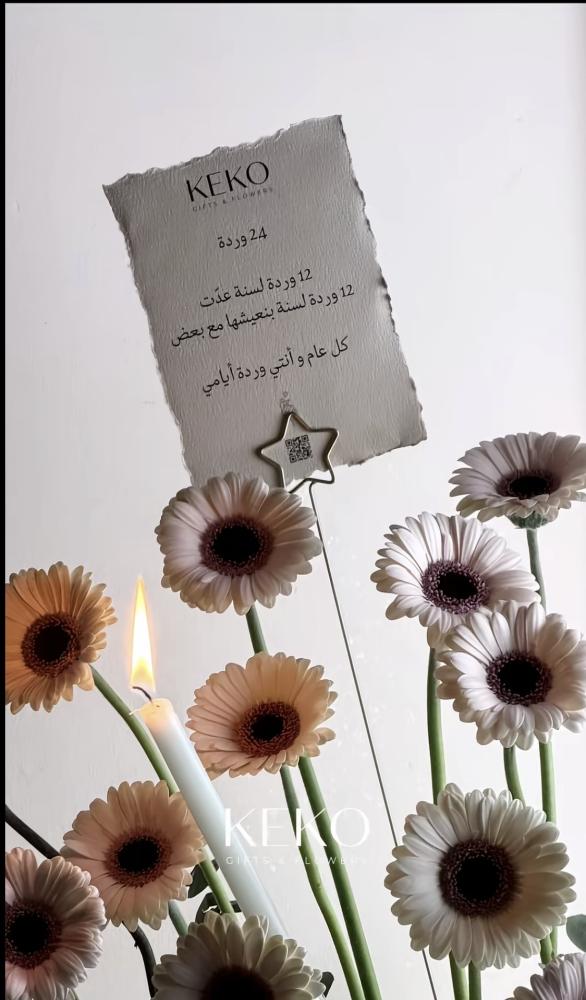 KEKO
GIFTS & FLOWERS
24 وردة
12 وردة لسنة عدّت
12 وردة لسنة بنعيشها مع بعض
كل عام و أنتي وردة أيامي
KEKO
GIFTS & FLOWERS